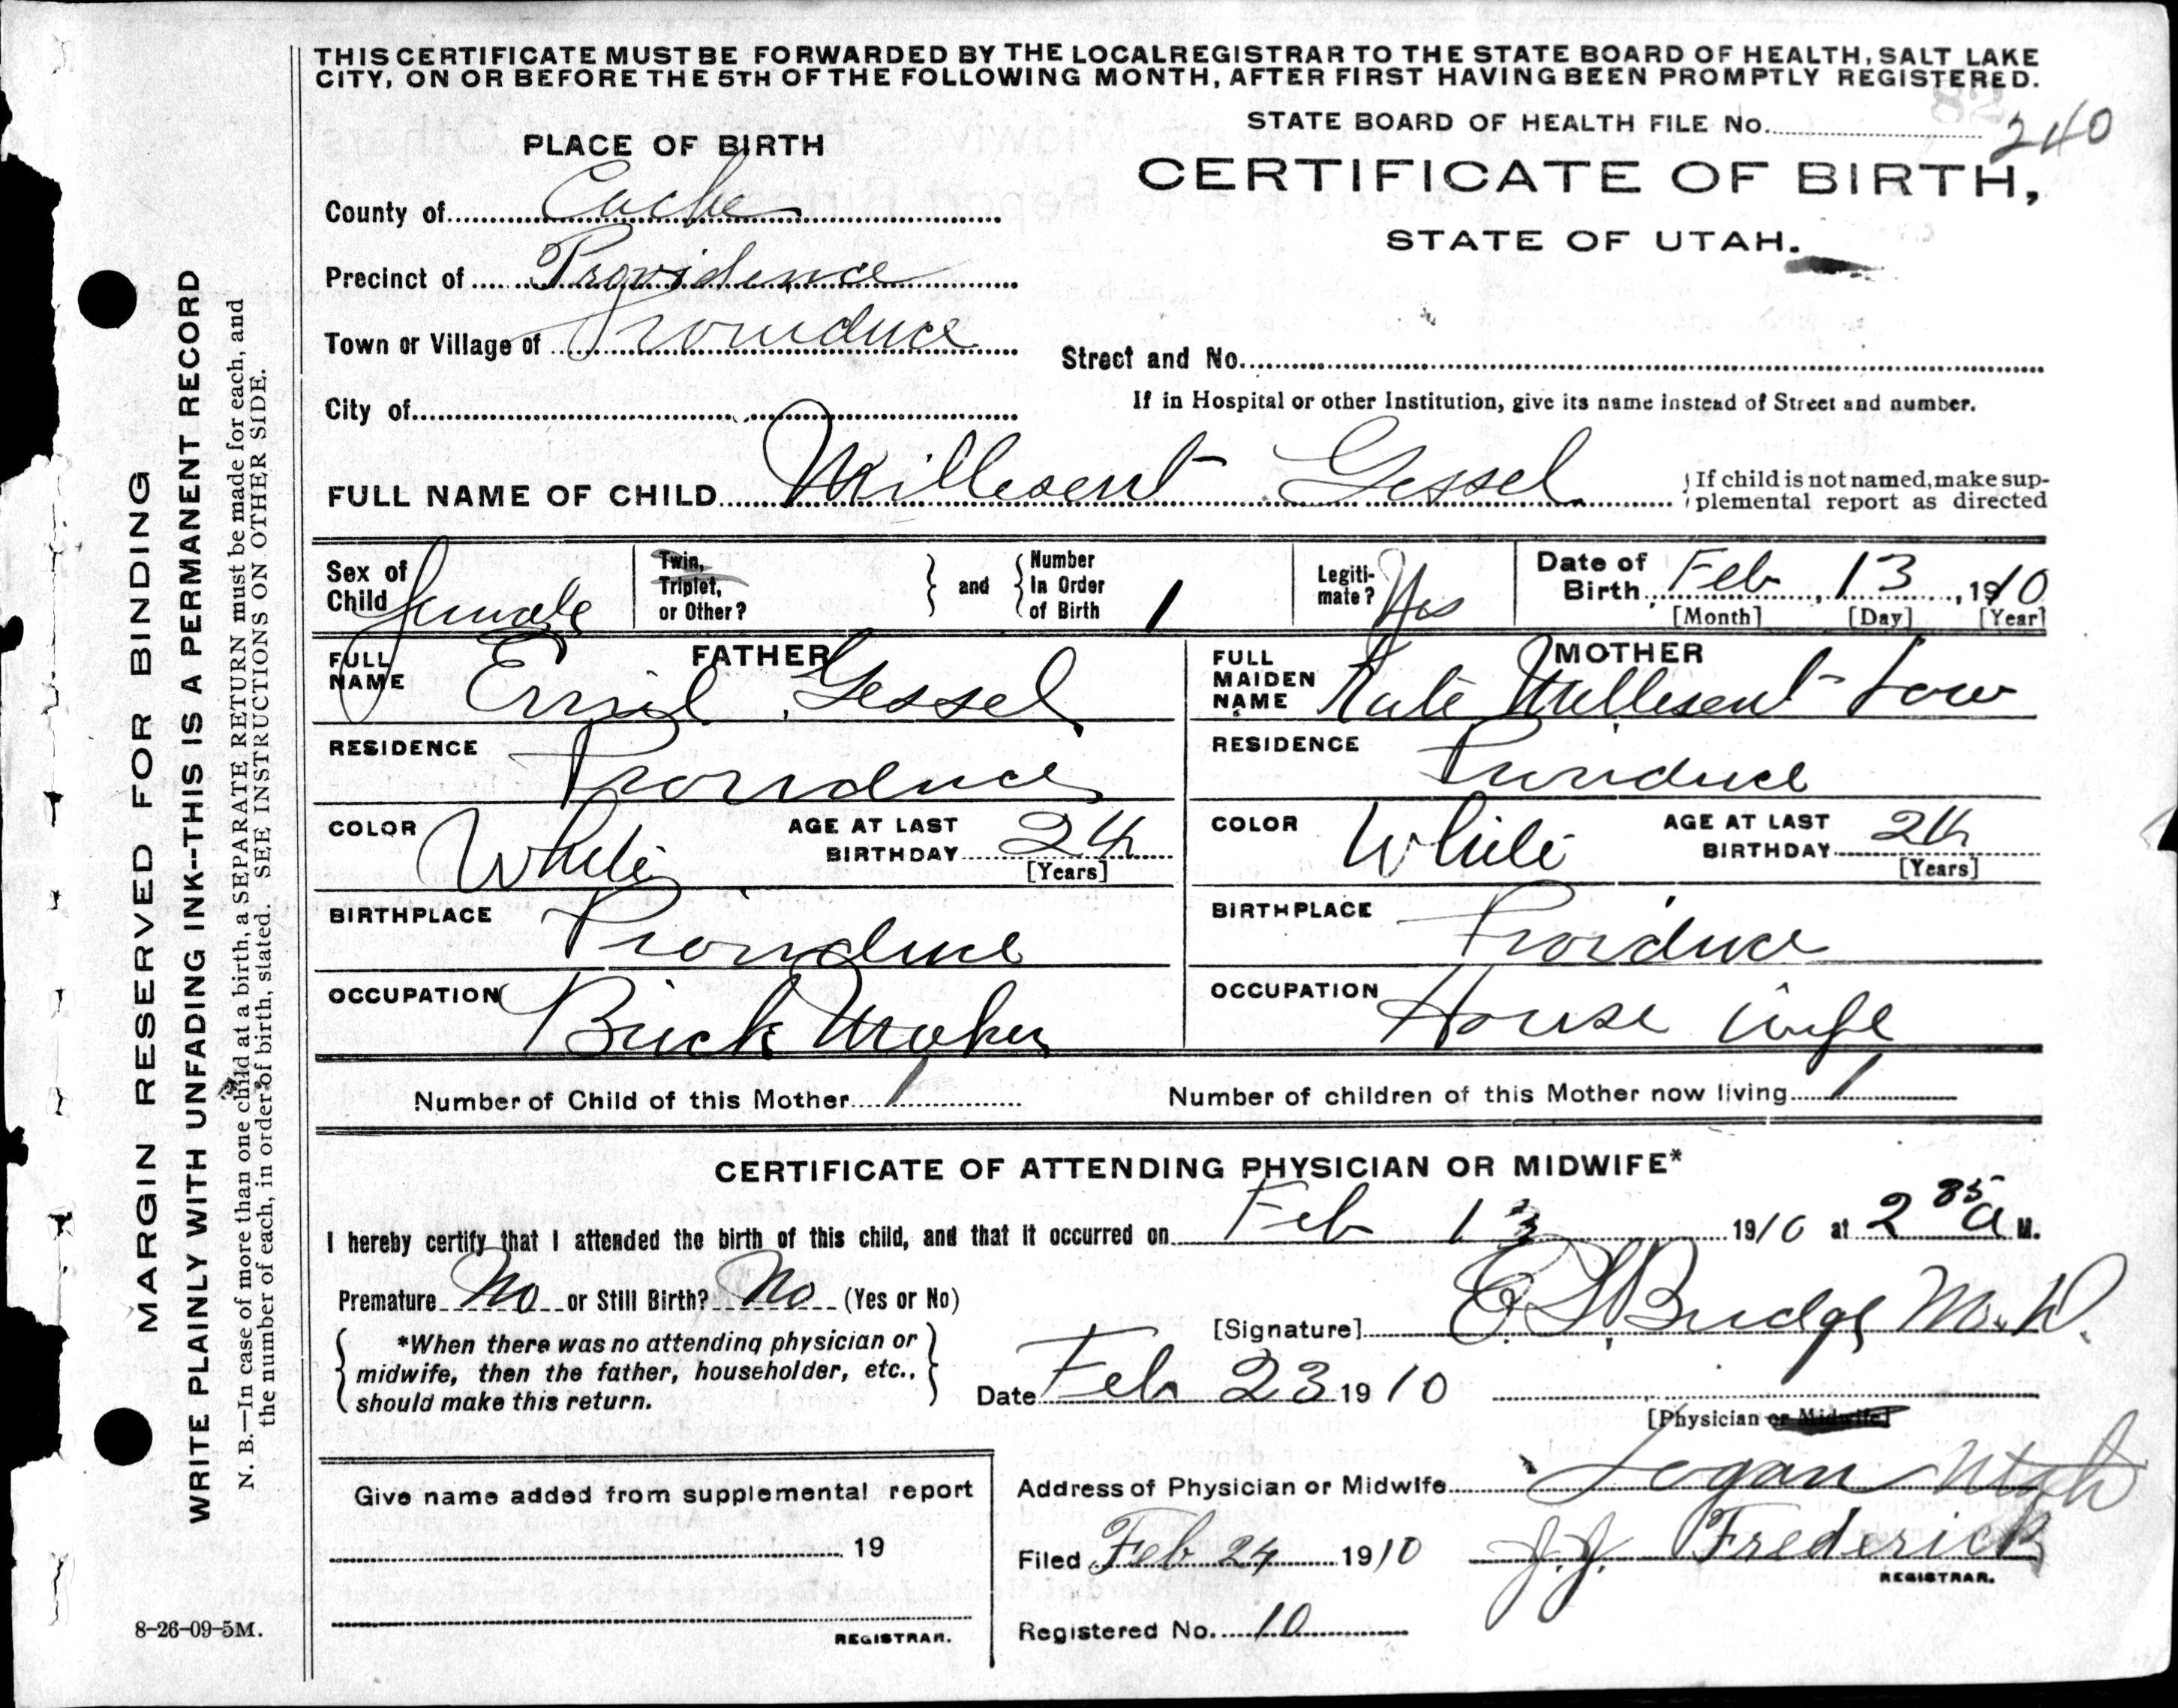 THIS CERTIFICATE MUST BE FORWARDED BY THE LOCAL REGISTRAR TO THE STATE BOARD OF HEALTH, SALT LAKE
CITY, ON OR BEFORE THE 5TH OF THE FOLLOWING MONTH, AFTER FIRST HAVING BEEN PROMPTLY REGISTERED.
STATE BOARD OF HEALTH FILE No. 240
PLACE OF BIRTH
CERTIFICATE OF BIRTH,
STATE OF UTAH.
County of Cache
Precinct of Providence
Town or Village of Providence
Street and No.
City of
If in Hospital or other Institution, give its name instead of Street and number.
FULL NAME OF CHILD Millesent Gessel
If child is not named, make sup-
plemental report as directed
Sex of Child female
Twin, Triplet, or Other?
and
Number in Order of Birth 1
Legiti-mate? Yes
Date of Birth Feb, 13, 1910
[Month] [Day] [Year]
FATHER
FULL NAME Emil Gessel
MOTHER
FULL MAIDEN NAME Kate Millesent Low
RESIDENCE Providence
RESIDENCE Providence
COLOR White
AGE AT LAST BIRTHDAY 24
[Years]
COLOR White
AGE AT LAST BIRTHDAY 24
[Years]
BIRTHPLACE Providence
BIRTHPLACE Providence
OCCUPATION Brick Maker
OCCUPATION House wife
Number of Child of this Mother 1
Number of children of this Mother now living 1
CERTIFICATE OF ATTENDING PHYSICIAN OR MIDWIFE*
I hereby certify that I attended the birth of this child, and that it occurred on Feb 13 1910 at 2 a M.
Premature No or Still Birth? No (Yes or No)
[Signature] Budge M.D.
*When there was no attending physician or
midwife, then the father, householder, etc.,
should make this return.
Date Feb 23 1910
[Physician or Midwife]
Address of Physician or Midwife Logan Utah
Give name added from supplemental report
19
REGISTRAR.
Filed Feb 24 1910 J.J. Frederick
REGISTRAR.
Registered No. 10
MARGIN RESERVED FOR BINDING
WRITE PLAINLY WITH UNFADING INK--THIS IS A PERMANENT RECORD
N. B.—In case of more than one child at a birth, a SEPARATE RETURN must be made for each, and
the number of each, in order of birth, stated. SEE INSTRUCTIONS ON OTHER SIDE.
8-26-09-5M.